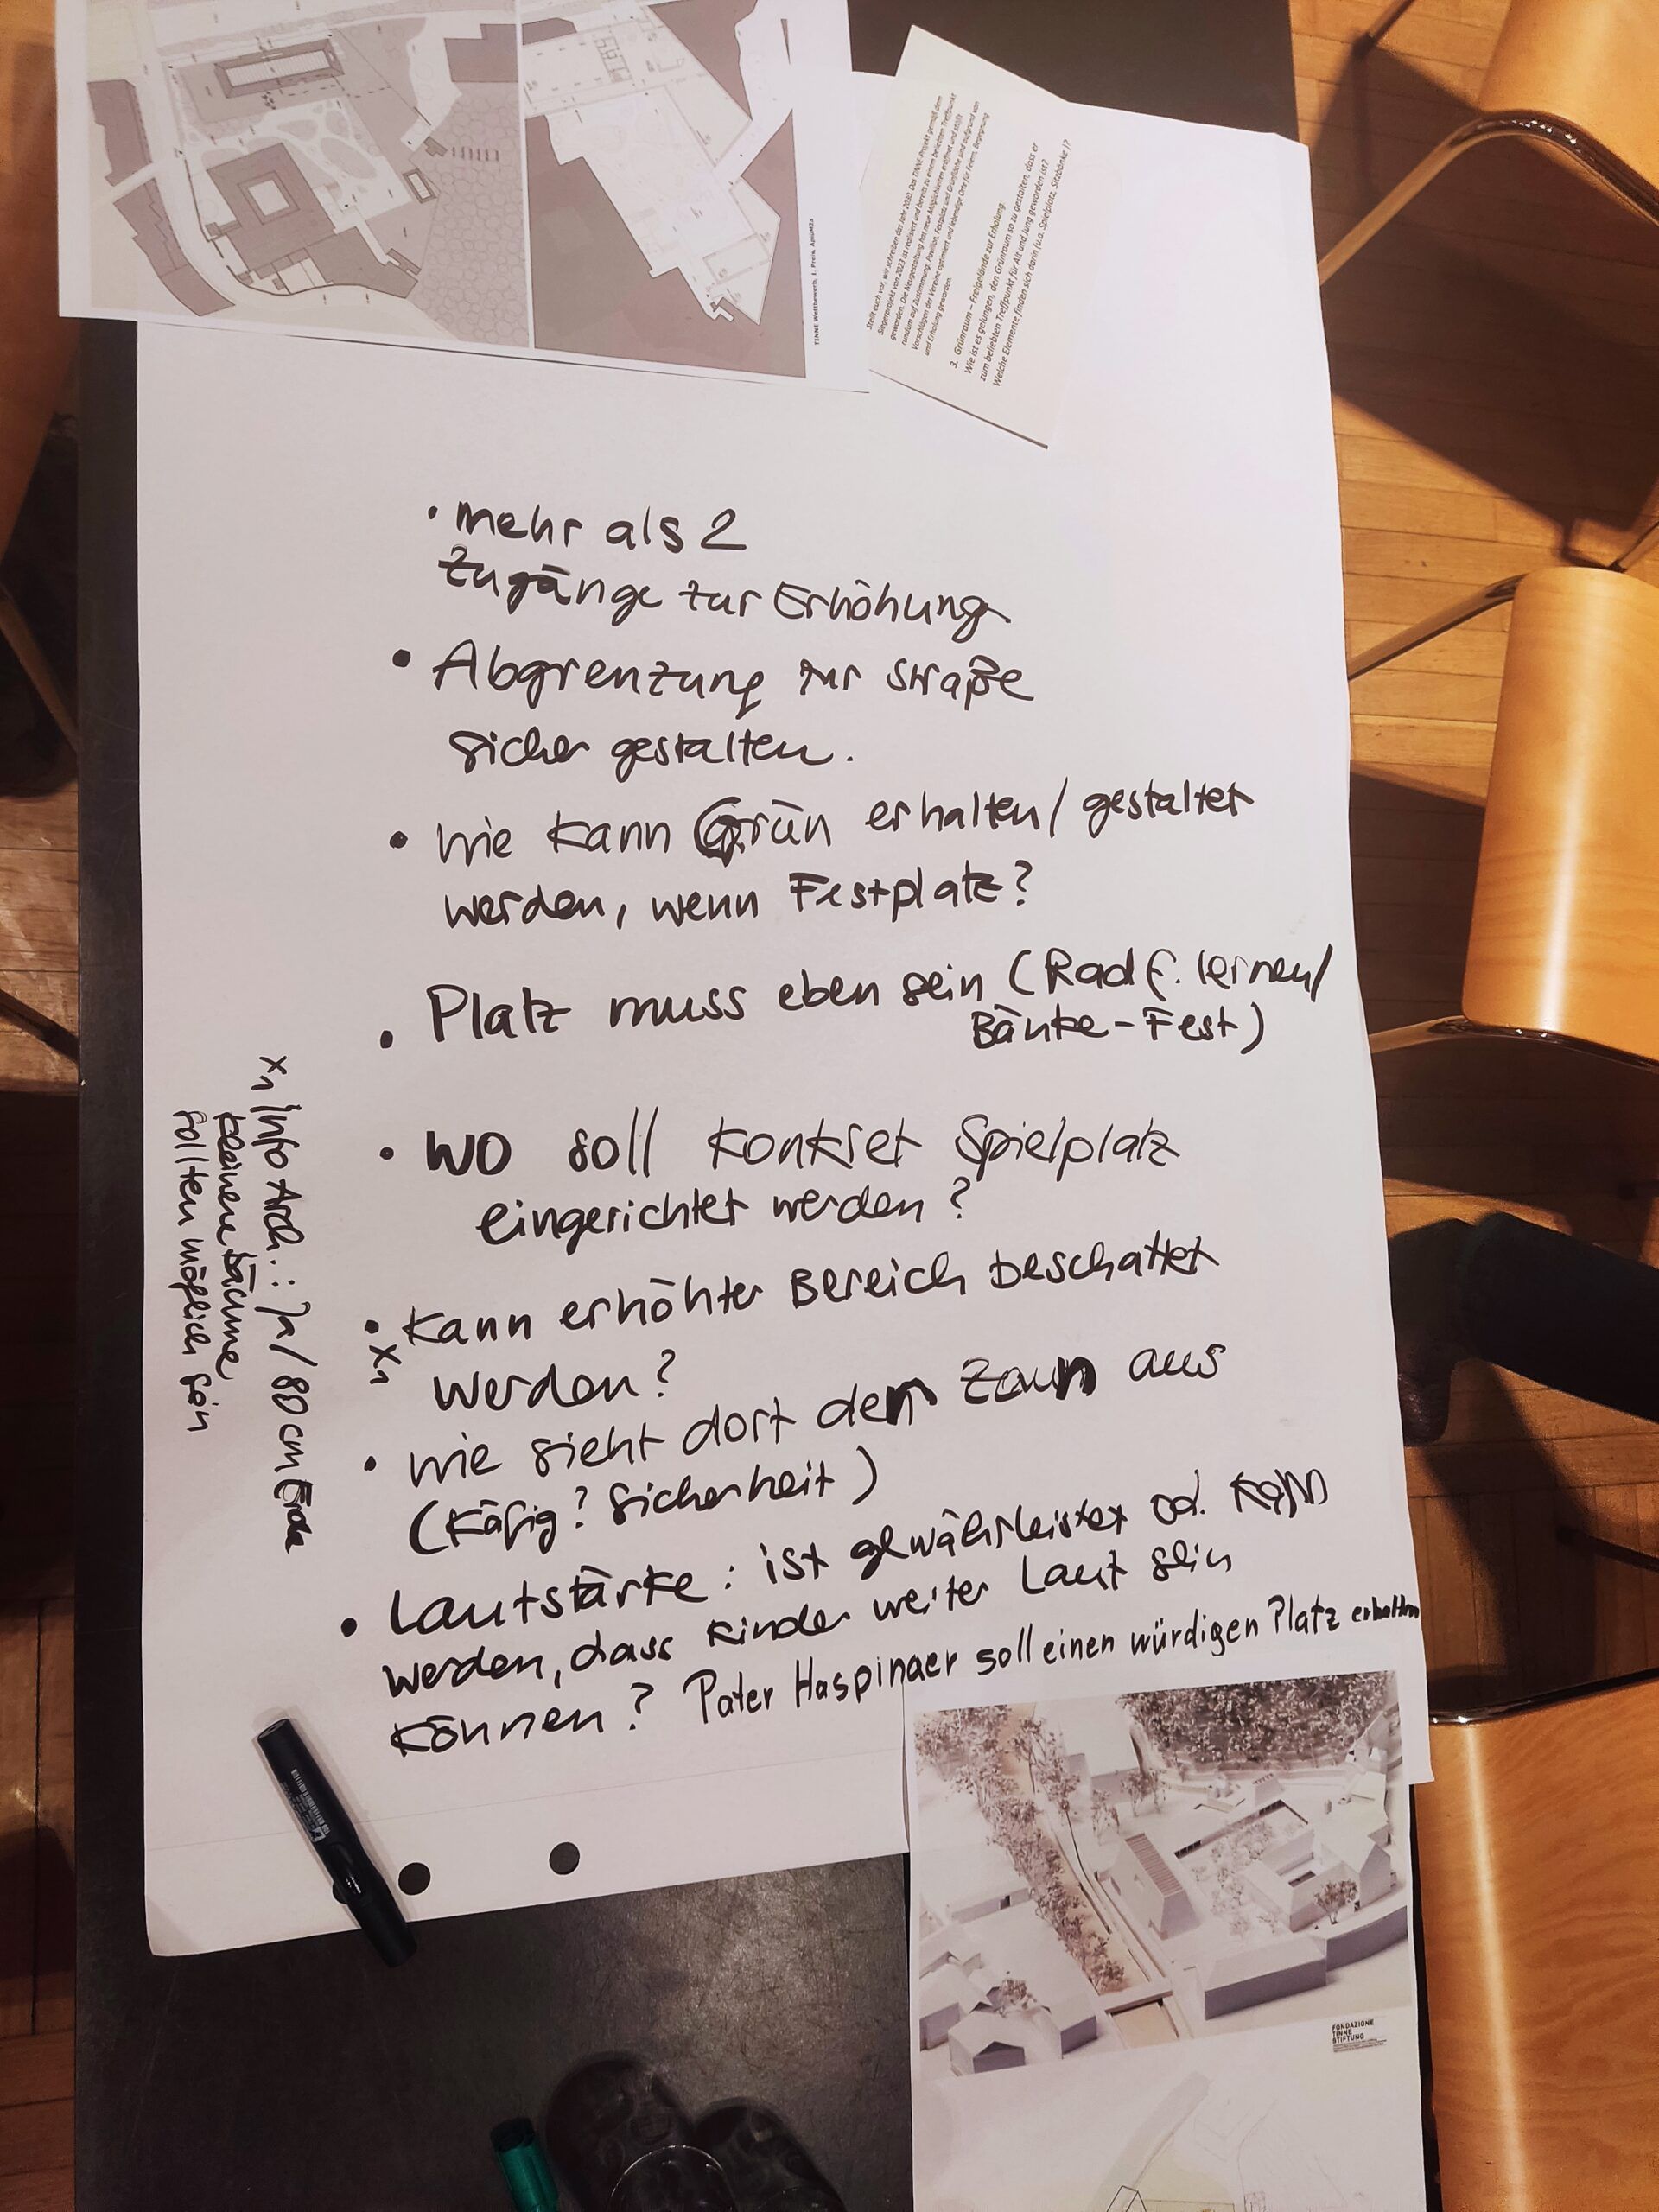 TINNE Wettbewerb, 1. Preis,
Stellt euch vor, wir schreiben das Jahr 2030. Das TINNE-Projekt gemäß dem
Siegerprojekt von 2023 ist realisiert und bereits zu einem beliebten Treffpunkt
geworden. Die Neugestaltung hat neue Möglichkeiten eröffnet und stößt
rundum auf Zustimmung. Pavillon, Festplatz und Grünfläche sind aufgrund von
Vorschlägen der Vereine optimiert und lebendige Orte für Feiern, Begegnung
und Erholung geworden.
3. Grünraum – Freigelände zur Erholung
Wie ist es gelungen, den Grünraum so zu gestalten, dass er
zum beliebten Treffpunkt für Alt und Jung geworden ist?
Welche Elemente finden sich darin (u.a. Spielplatz, Sitzbänke )?
• mehr als 2
Zugänge zur Erhöhung
• Abgrenzung zur Straße
sicher gestalten.
• wie kann Grün erhalten/gestaltet
werden, wenn Festplatz?
• Platz muss eben sein (Rad f. lernen/
Bänke-Fest)
• WO soll konkret Spielplatz
eingerichtet werden?
• Kann erhöhter Bereich beschattet
x1 werden?
• wie sieht dort der Zaun aus
(Käfig? Sicherheit)
• Lautstärke: ist gewährleistet od. kann
werden, dass Kinder weiter Laut sein
können? Pater Haspinger soll einen würdigen Platz erhalten
x1 Info Arch.: Ja / 80 cm Erde
kleinere Bäume
sollten möglich sein
FONDAZIONE
TINNE
STIFTUNG